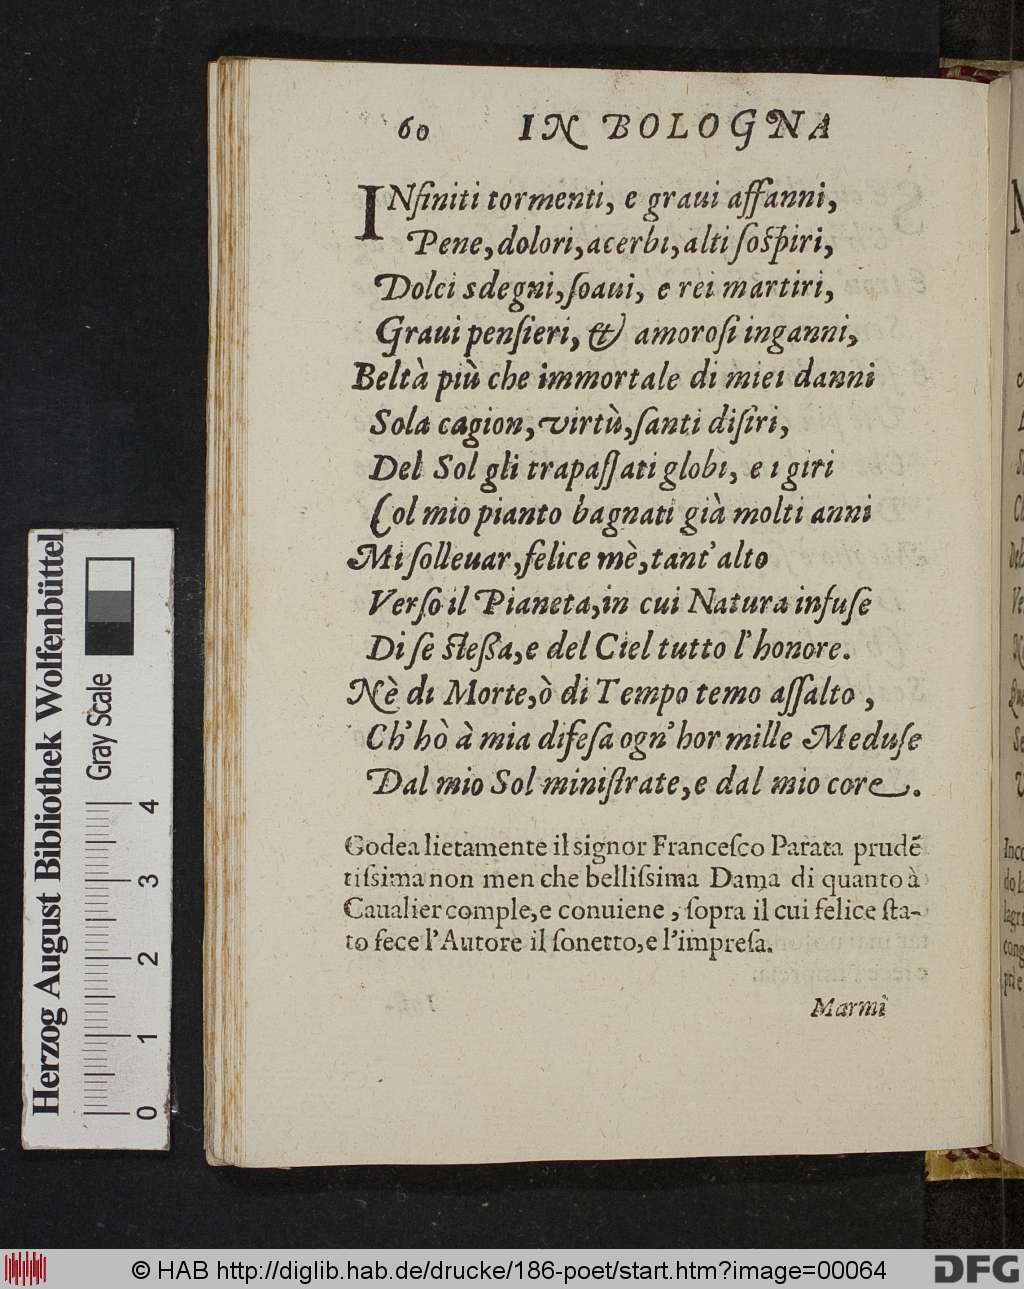 60 IN BOLOGNA
INfiniti tormenti, e graui affanni,
Pene, dolori, acerbi, alti soſpiri,
Dolci sdegni, ſoaui, e rei martiri,
Graui penſieri, & amoroſi inganni,
Beltà più che immortale di miei danni
Sola cagion, virtù, ſanti diſiri,
Del Sol gli trapaſſati globi, e i giri
Col mio pianto bagnati già molti anni
Mi ſolleuar, felice mè, tant'alto
Verſo il Pianeta, in cui Natura infuſe
Di ſe ſteſſa, e del Ciel tutto l'honore.
Nè di Morte, ò di Tempo temo aſſalto,
Ch'hò à mia difeſa ogn'hor mille Meduſe
Dal mio Sol miniſtrate, e dal mio core.
Godea lietamente il signor Franceſco Parata prudẽ
tiſsima non men che belliſsima Dama di quanto à
Caualier comple, e conuiene, ſopra il cui felice ſta-
to fece l'Autore il ſonetto, e l'impreſa.
Marmi
Herzog August Bibliothek Wolfenbüttel
Gray Scale
0 1 2 3 4
© HAB http://diglib.hab.de/drucke/186-poet/start.htm?image=00064
DFG